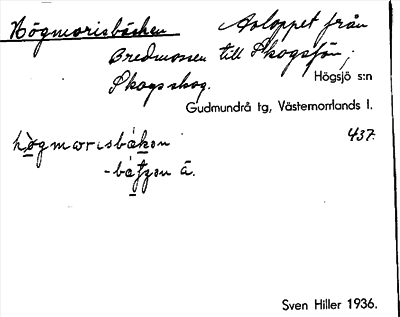 Högmorisbäcken Avloppet från
Bredmossen till Skogsjön;
Skogs skog. Högsjö s:n
Gudmundrå tg, Västernorrlands l.
437.
Sven Hiller 1936.